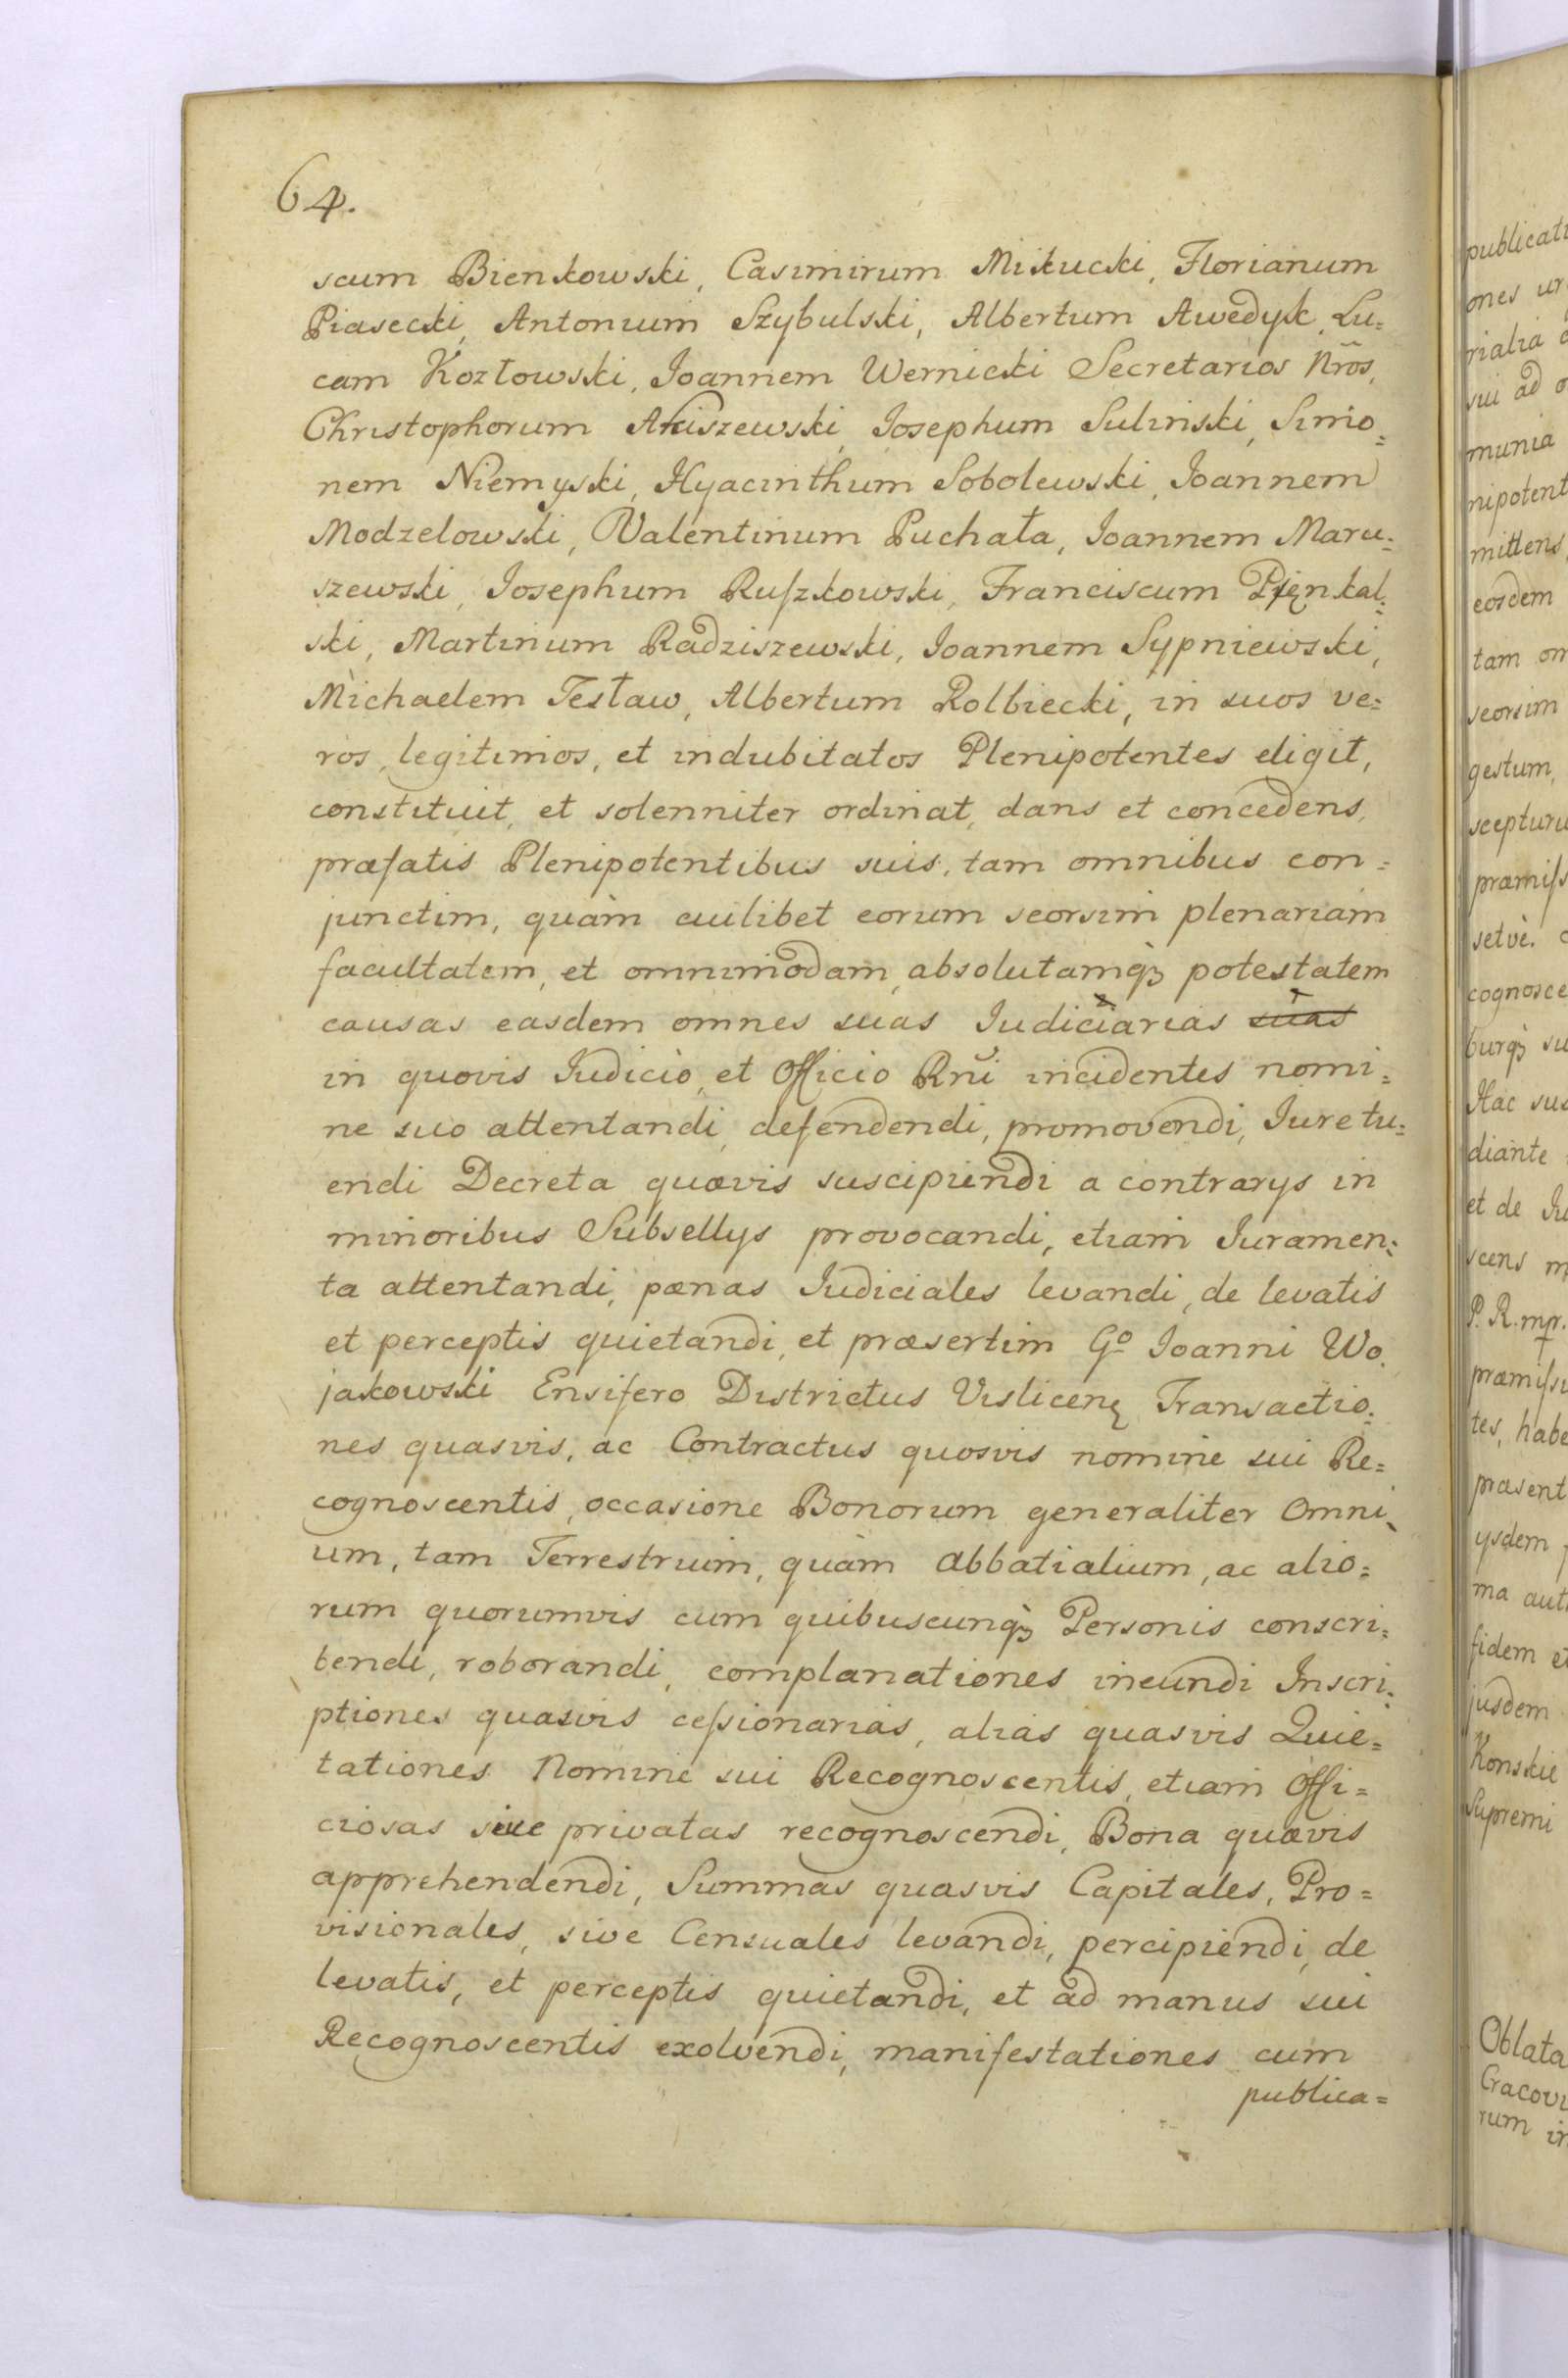 64.
scum Bienkowski, Casimirum Mikucki, Florianum
Piasecki, Antonium Szybulski, Albertum Awedyk, Lu=
cam Kozłowski, Joannem Wernicki Secretarios Nr̃os,
Christophorum Akiszewski, Josephum Sulinski, Simo=
nem Niemyski, Hyacinthum Sobolewski, Joannem
Modzelowski, Valentinum Puchała, Joannem Maru=
szewski, Josephum Ruſzkowski, Franciscum Pięnkal=
ski, Martinum Radziszewski, Joannem Sypniewski,
Michaelem Tesław, Albertum Rolbiecki, in suos ve=
ros, legitimos, et indubitatos Plenipotentes eligit,
constituit, et solenniter ordinat, dans et concedens,
præfatis Plenipotentibus suis, tam omnibus con=
junctim, quàm cuilibet eorum seorsim plenariam
facultatem, et omnimodam, absolutamqꝫ potestatem
causas easdem omnes suas Judiciarias suas
in quovis Judicio, et Officio Rñi incidentes nomi=
ne suo attentandi, defendendi, promovendi, Jure tu=
endi Decreta quævis suscipiendi a contrarys in
minoribus Subsellys provocandi, etiam Juramen=
ta attentandi, pœnas Judiciales levandi, de levatis
et perceptis quietandi, et præsertim Gº Joanni Wo=
jakowski Ensifero Districtus Vislicenę Transactio=
nes quasvis, ac Contractus quosvis nomine sui Re=
cognoscentis, occasione Bonorum generaliter Omni=
um, tam Terrestrium, quàm abbatialium, ac alio=
rum quorumvis cum quibuscunqꝫ Personis conscri=
bendi, roborandi, complanationes ineundi Inscri=
ptiones quasvis ceſsionarias, alias quasvis Quie=
tationes Nomine sui Recognoscentis, etiam Offi=
ciosas sive privatas recognoscendi, Bona quævis
apprehendendi, Summas quasvis Capitales, Pro=
visionales, sive Censuales levandi, percipiendi, de
levatis, et perceptis quietandi, et ad manus sui
Recognoscentis exolvendi, manifestationes cum
publica=
publicati
ones
rialia
sui ad
munia
nipotent
mittens
eosdem
tam om
seorsim
gestum,
scepturu
præmiſs
setvè.
cognosce
burqꝫ su
Hac sus
diante
et de Ju
scens m
P. R. mp.
præmiſsi
tes, habe
præsent
ysdem
ma aut
fidem et
jusdem
Konskie
Supremi
Oblata
Cracovi
rum in